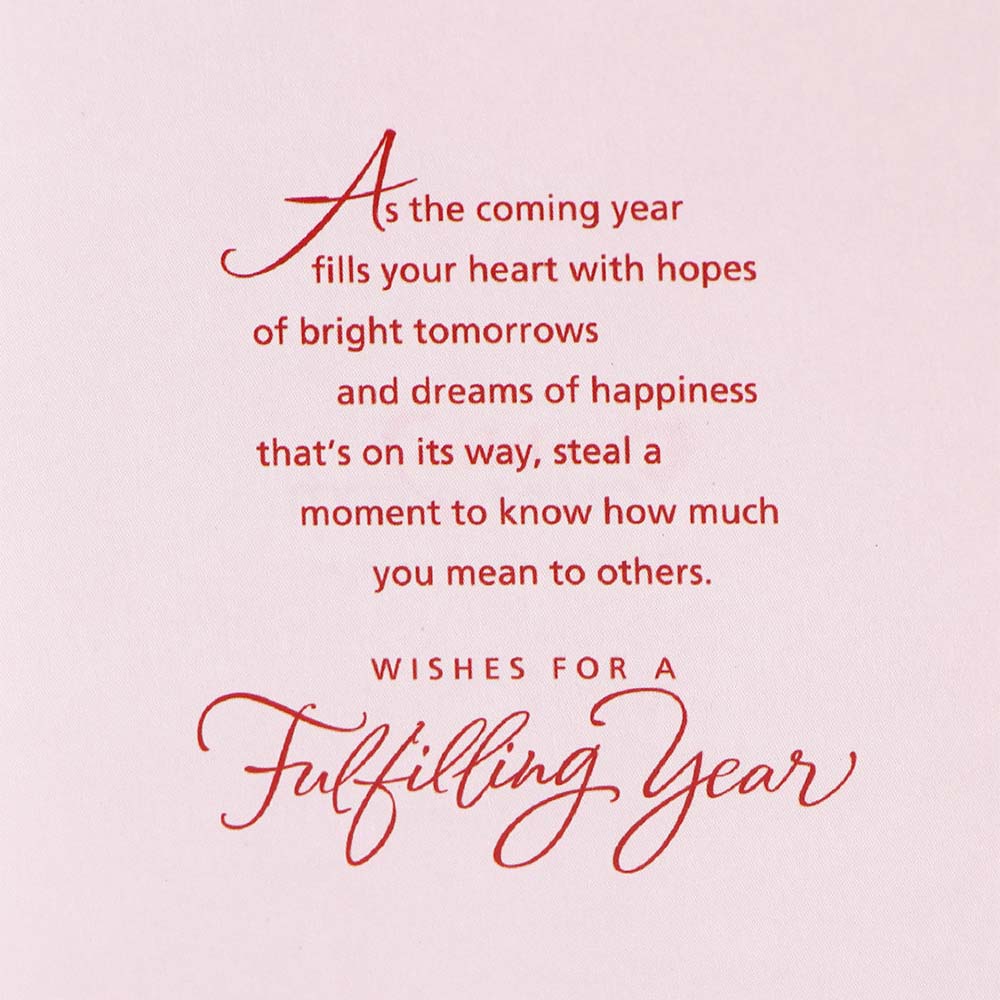 As the coming year
fills your heart with hopes
of bright tomorrows
and dreams of happiness
that's on its way, steal a
moment to know how much
you mean to others.
WISHES FOR A
Fulfilling Year